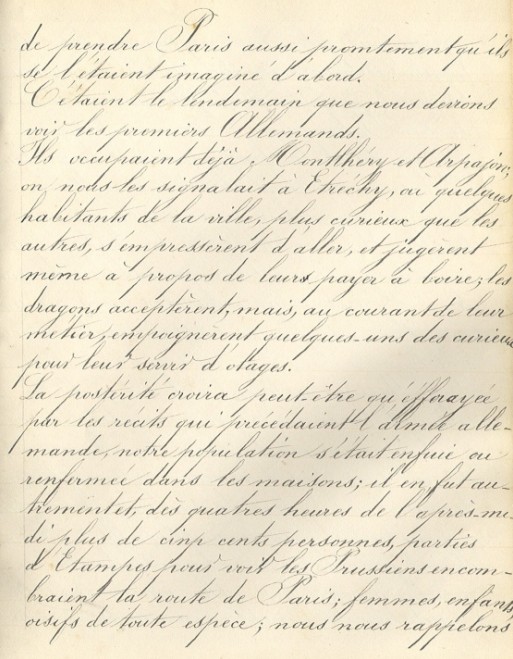 de prendre Paris aussi promtement qu'ils
se l'étaient imaginé d'abord.
C'étaient le lendemain que nous devions
voir les premiers Allemands.
Ils occupaient déjà Montlhéry et Arpajon;
on nous les signalait à Etréchy, où quelques
habitants de la ville, plus curieux que les
autres, s'empressèrent d'aller, et jugèrent
même à propos de leurs payer à boire; les
dragons acceptèrent, mais, au courant de leur
metier, empoignèrent quelques-uns des curieux
pour leur servir d'otages.
La postérité croira peut-être qu'éffrayée
par les récits qui précédaient l'armée alle-
mande, notre population s'était enfuie ou
renfermeé dans les maisons; il en fut au-
trement et, dès quatres heures de l'après-mi-
di plus de cinp cents personnes, parties
d'Etampes pour voir les Prussiens encom-
braient la route de Paris; femmes, enfants
oisifs de toute espèce; nous nous rappelons